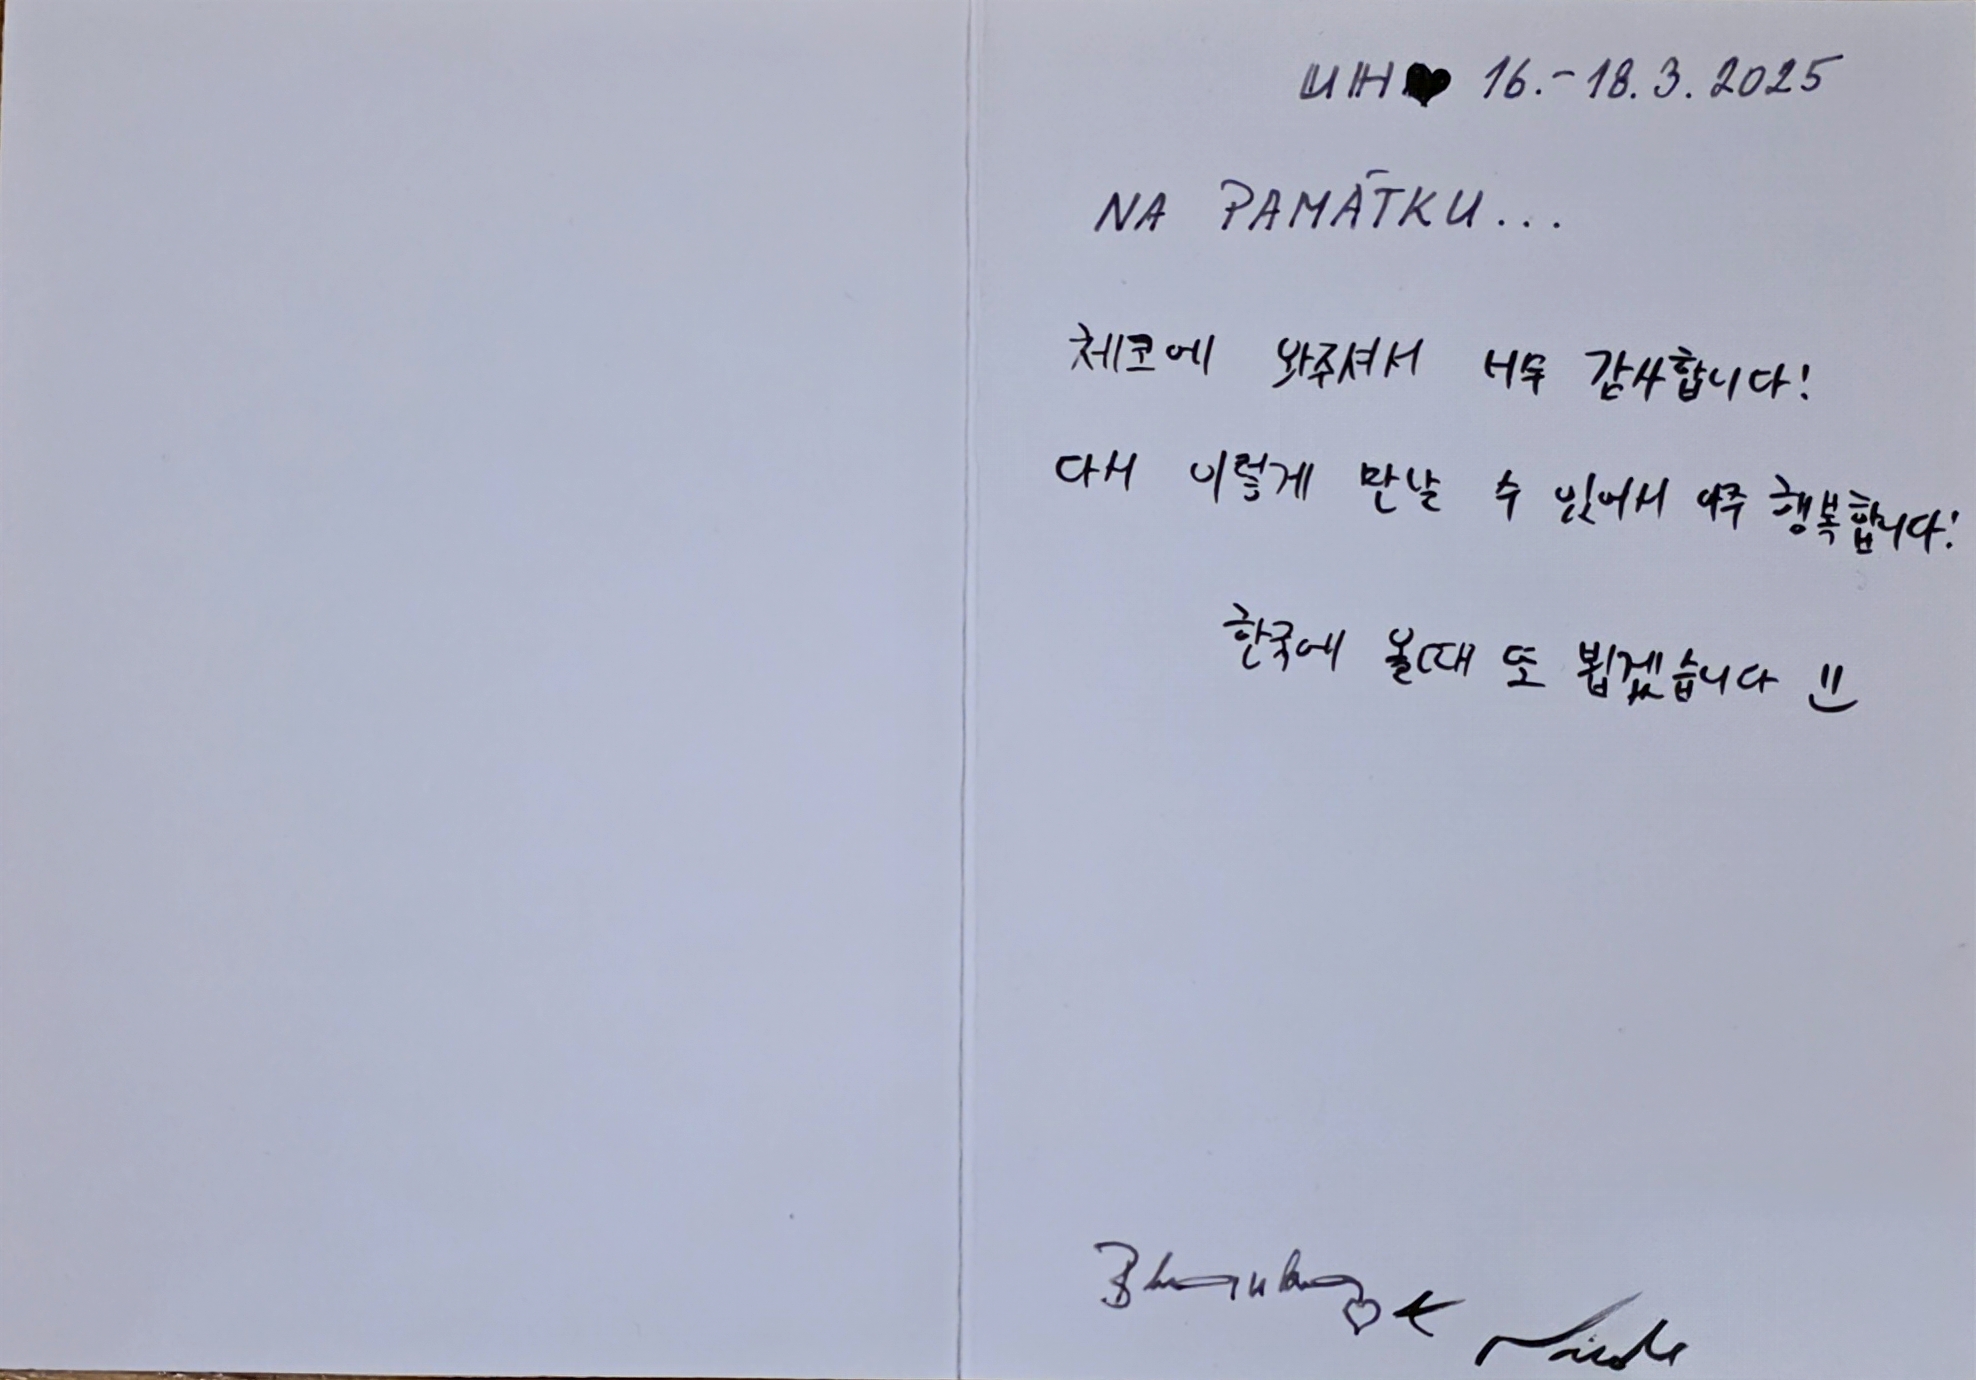 UH♥ 16.-18.3.2025
NA PAMÁTKU...
체코에 와주셔서 너무 감사합니다!
다시 이렇게 만날 수 있어서 아주 행복합니다!
한국에 올때 또 뵙겠습니다 :)